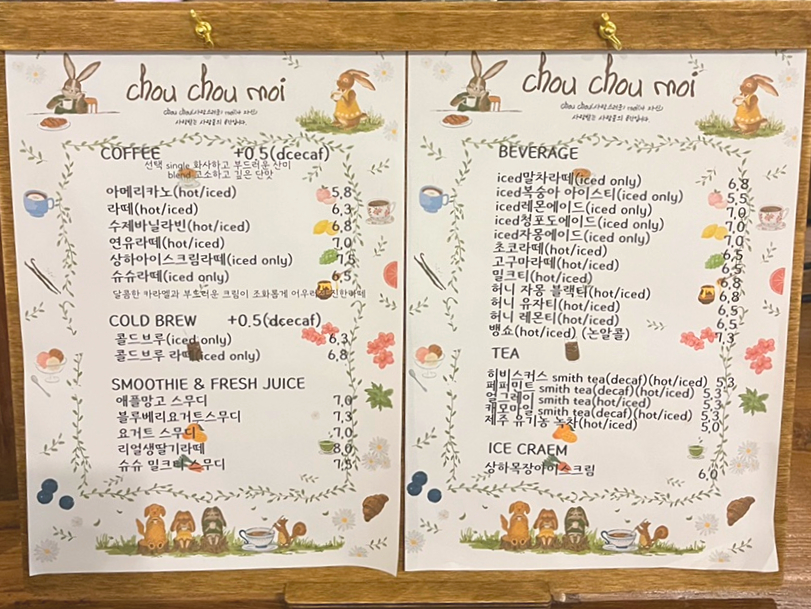 chou chou moi
chou chou(사랑스러운) moi(나 자신)
사랑받는 사람들의 공간입니다.
COFFEE +0.5(dcecaf)
선택 single 화사하고 부드러운 산미
blend 고소하고 깊은 단맛
아메리카노(hot/iced) 5,8
라떼(hot/iced) 6,3
수제바닐라빈(hot/iced) 6,8
연유라떼(hot/iced) 7,0
상하아이스크림라떼(iced only)
슈슈라떼(iced only) 6,5
달콤한 카라멜과 부드러운 크림이 조화롭게
COLD BREW +0.5(dcecaf)
콜드브루(iced only) 6,3
콜드브루 라떼(iced only) 6,8
SMOOTHIE & FRESH JUICE
애플망고 스무디 7,0
블루베리요거트스무디 7,3
요거트 스무디 7,0
리얼생딸기라떼 8,0
슈슈 밀크티 스무디 7,5
chou chou moi
chou chou(사랑스러운) moi(나 자신)
사랑받는 사람들의 공간입니다.
BEVERAGE
iced말차라떼(iced only) 6,8
iced복숭아 아이스티(iced only) 5,5
iced레몬에이드(iced only) 7,0
iced청포도에이드(iced only) 7,0
iced자몽에이드(iced only) 7,0
초코라떼(hot/iced) 6,5
고구마라떼(hot/iced) 6,5
밀크티(hot/iced) 6,8
허니 자몽 블랙티(hot/iced) 6,8
허니 유자티(hot/iced) 6,5
허니 레몬티(hot/iced) 6,5
뱅쇼(hot/iced) (논알콜) 7,3
TEA
히비스커스 smith tea(decaf)(hot/iced) 5,3
페퍼민트 smith tea(decaf)(hot/iced) 5,3
얼그레이 smith tea(hot/iced) 5,3
캐모마일 smith tea(decaf)(hot/iced) 5,3
제주 유기농 녹차(hot/iced) 5,0
ICE CRAEM
상하목장아이스크림 6,0